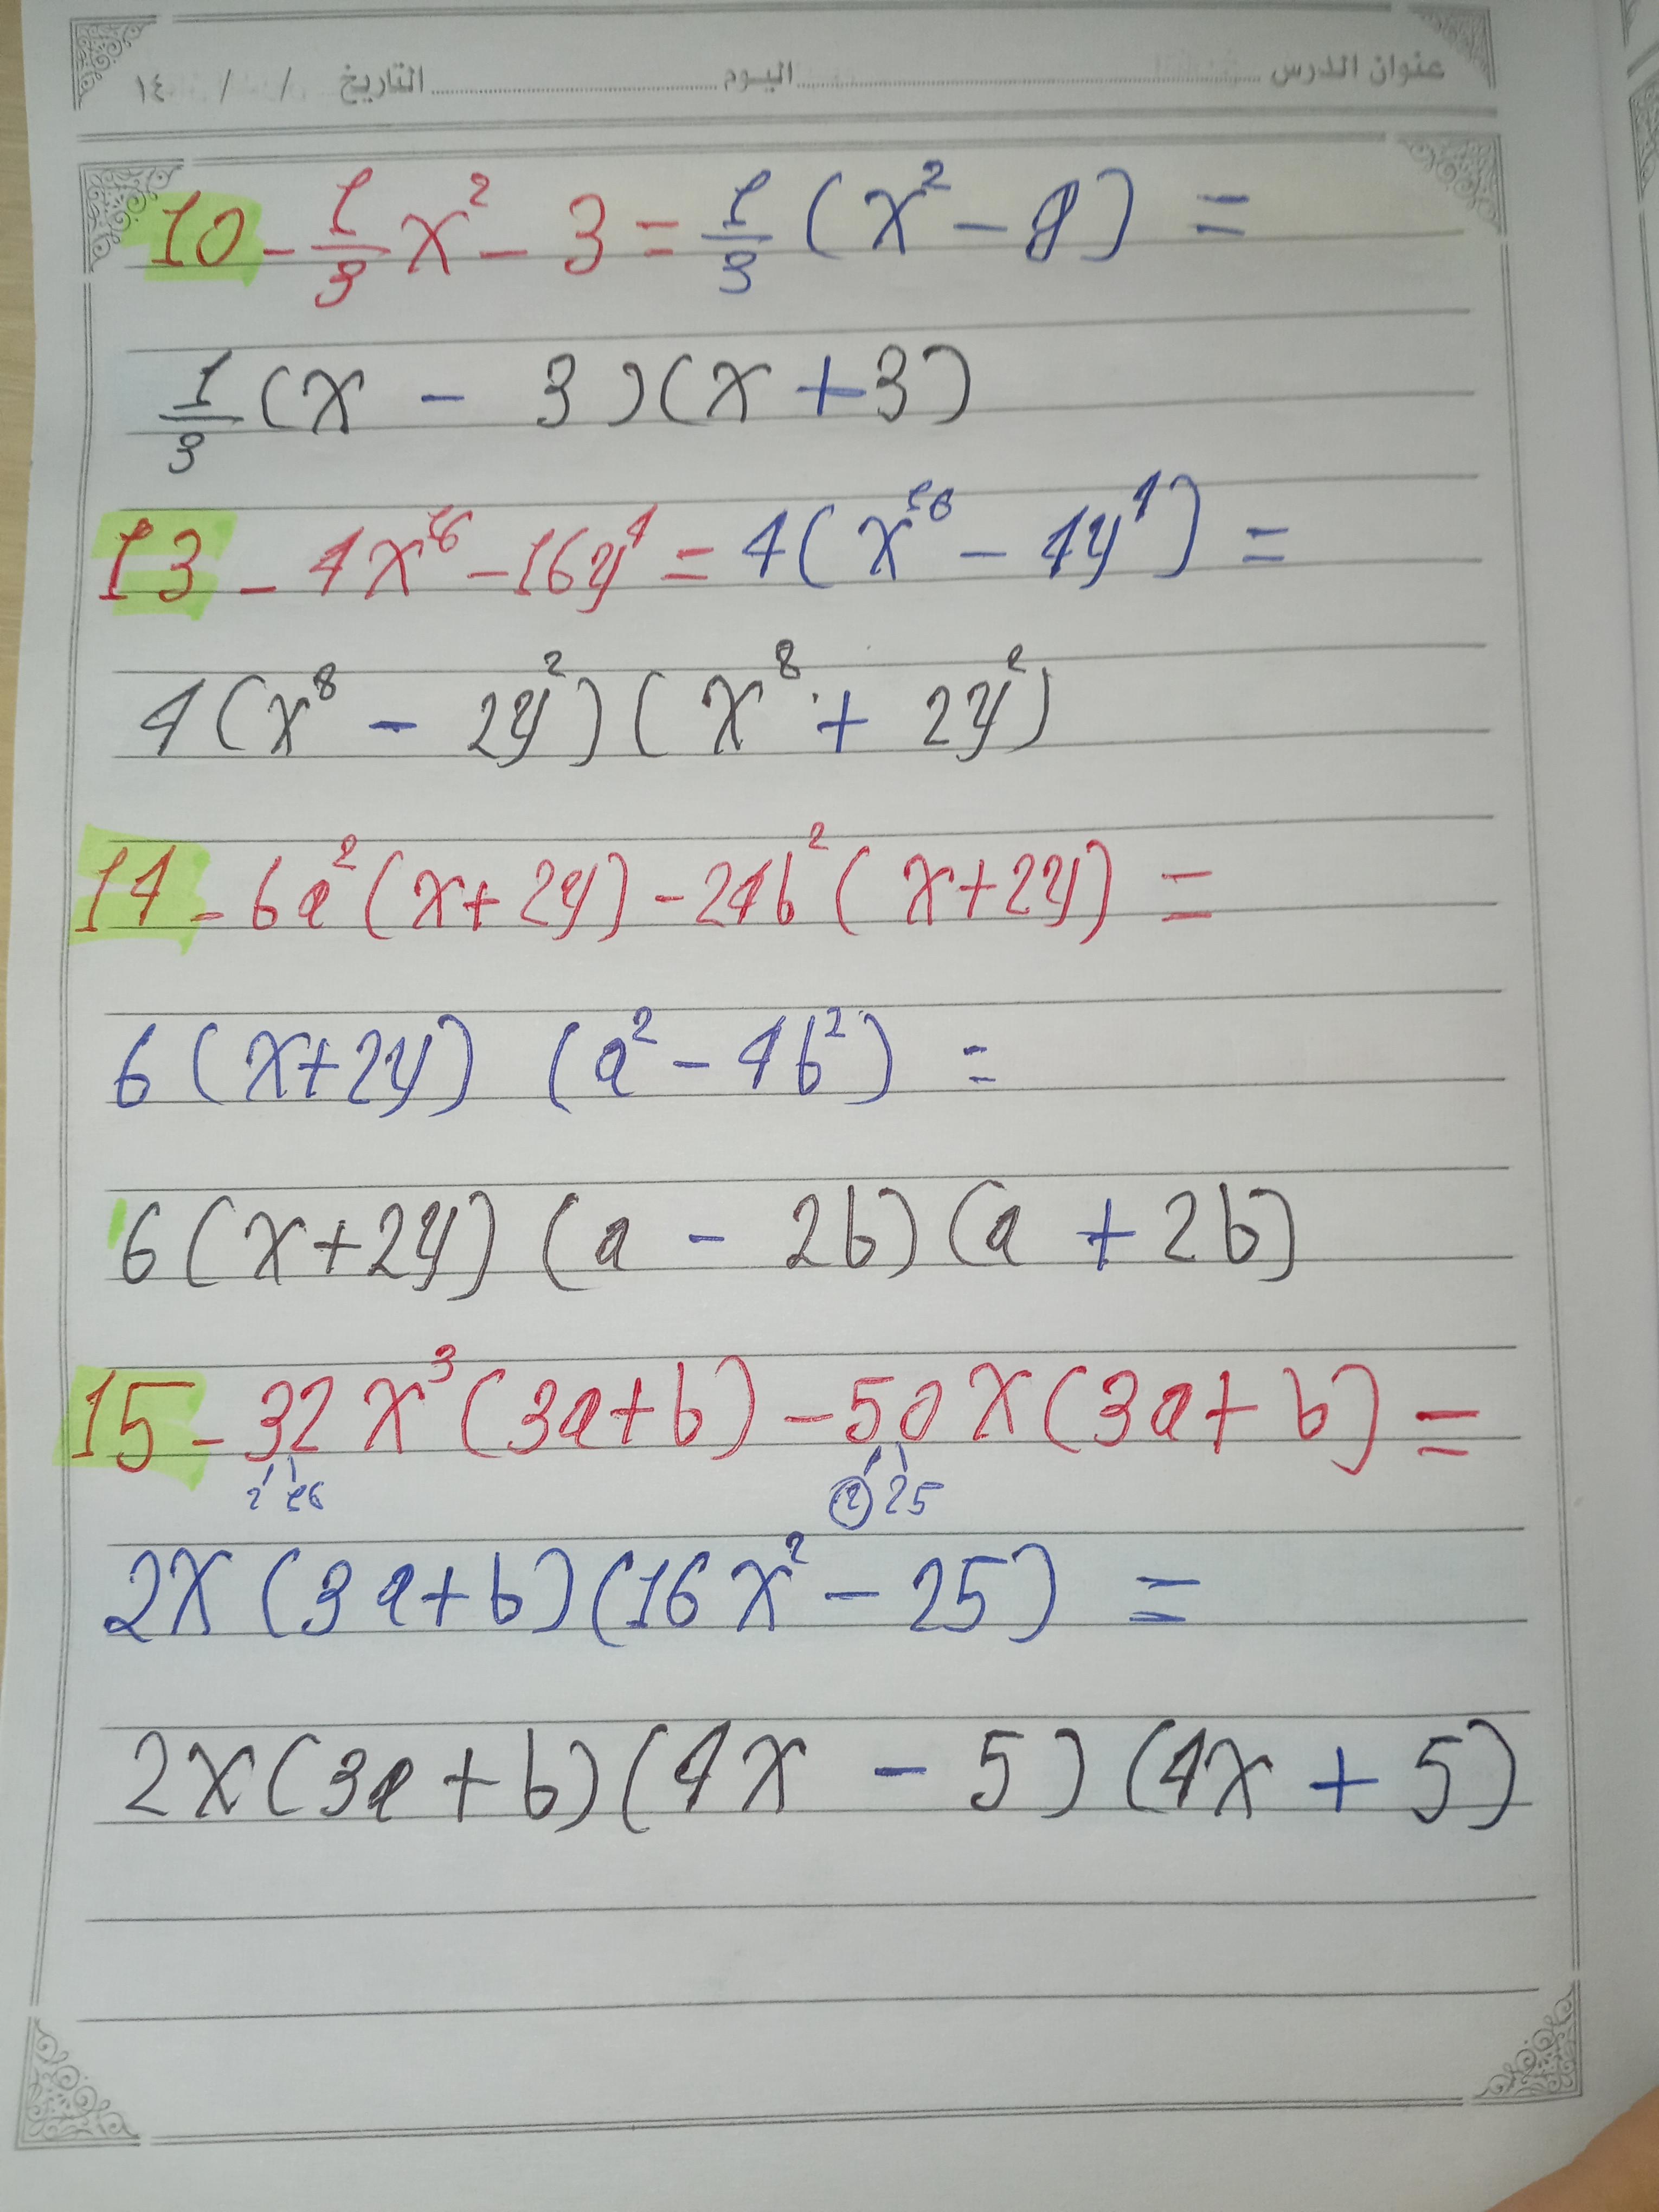 عنوان الدرس ........ اليوم ........ التاريخ / / ١٤
10 - 1/3 x² - 3 = 1/3 (x² - 9) =
1/3 (x - 3)(x + 3)
13 - 4x¹⁶ - 16y⁴ = 4(x¹⁶ - 4y⁴) =
4(x⁸ - 2y²)(x⁸ + 2y²)
14 - 6a²(x+2y) - 24b²(x+2y) =
6(x+2y) (a² - 4b²) =
6(x+2y) (a - 2b)(a + 2b)
15 - 32x³(3a+b) - 50x(3a+b) =
2 16 2 25
2x(3a+b)(16x² - 25) =
2x(3a+b)(4x - 5)(4x + 5)